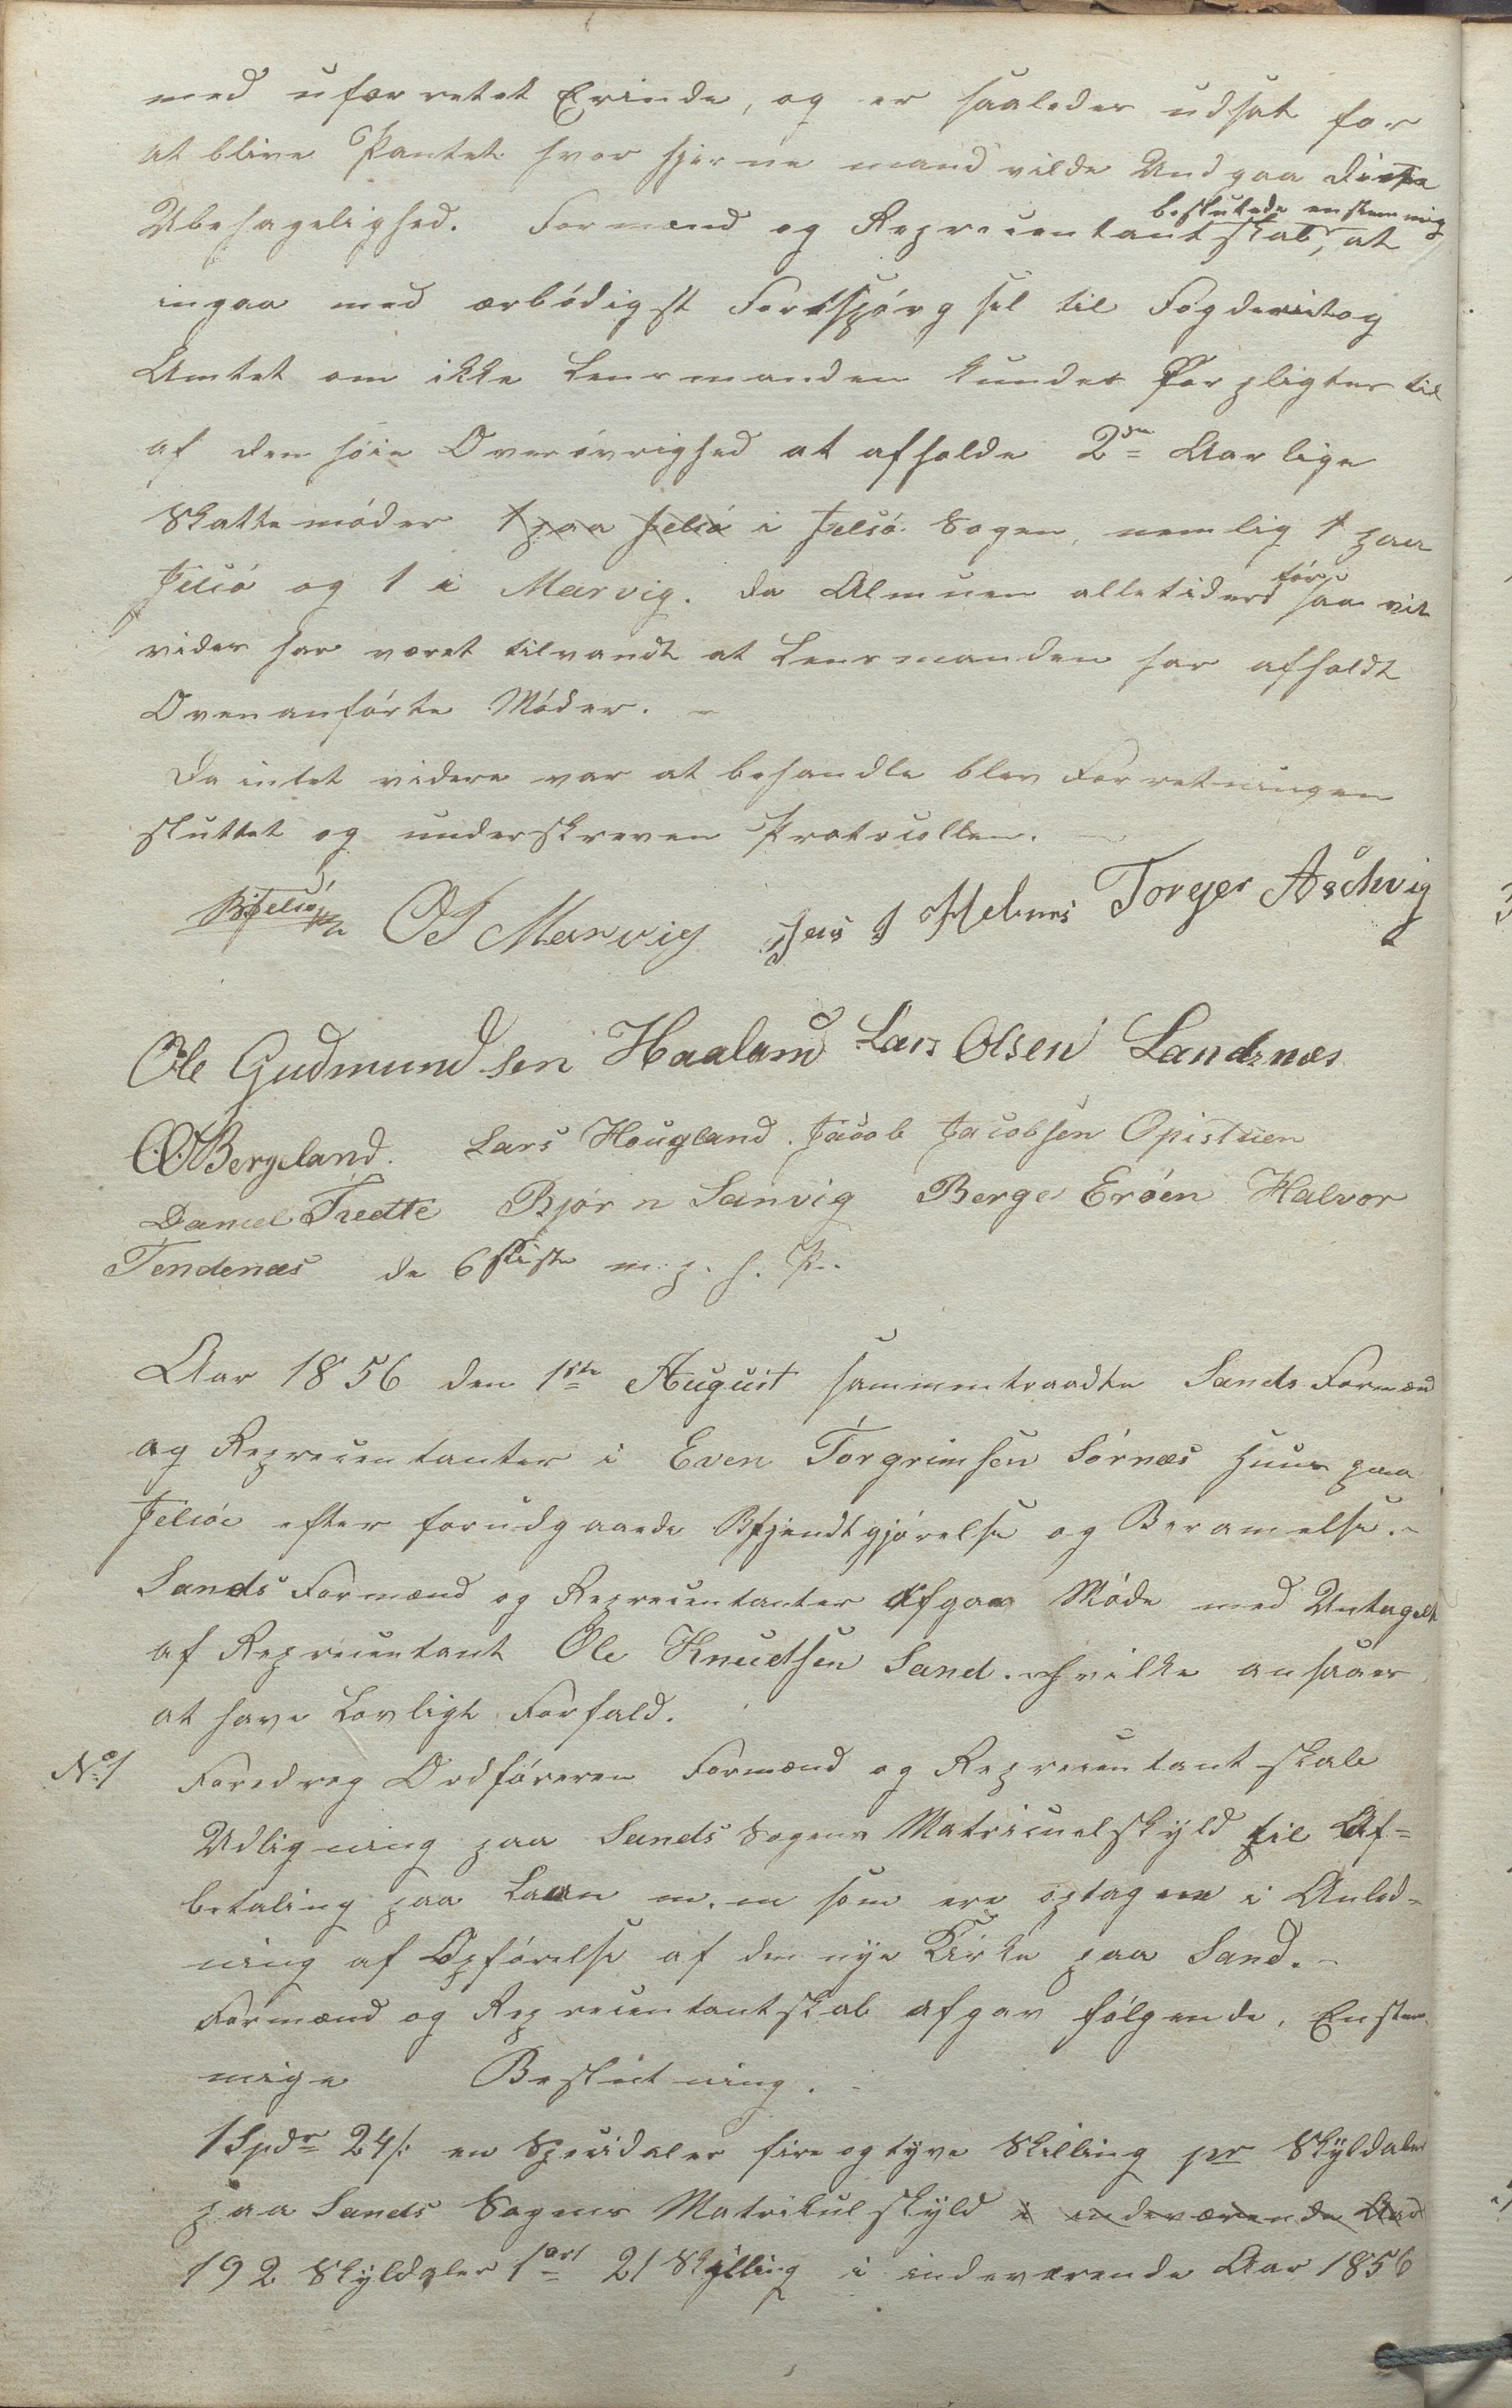 med uforretet Erinde, og er saaledes udsat for
at blive Pantet hvor hjerne mand vilde Undgaa disse
Ubehagelighed. Formænd og Represcentantskab, at
besluttede enstemmig
ingaa med ærbödigst Fordspörgsel til Fogderiet og
Amtet om ikke Lensmanden kunde Forpligtes til
af den höie Overövrighed at afholde 2de Aarlige
Skattemöder 1 paa Jelsö i Jelsö Sogen, nemlig 1 paa
Jelsö og 1 i Marvig. da Almuen alletider för saa vit
vides har været tilvandt at Lensmanden har afholdt
Ovenanförte Möder. –
Da intet videre var at behandle blev Forretningen
sluttet og underskreven Protocollen. –
OJ Marvig Jens J Helnes Torger Aschvig
Ole Gudmundsen Haaland Lars Olsen Landsnæs
O.O Bergeland. Lars Hougland. Jacob Jacobsen Opistuen
Daniel Tvedte Bjørn Sanvig Berge Eröen Halvor
Tendenæs de 6 sidste m. p. h. P..
Aar 1856 den 1ste August sammentraadte Sands Formænd
og Represcentanter i Even Torgrimsen Sörnæs Huus paa
Jelsöe efter forudgaaede Bkjendtgjörelse og Berammelse. –
Sands Formænd og Represcentanter afgav Möde med Untagelse
af Represcentant Ole Knudsen Sand. Hvilke ansaaes
at have Lovligt Forfald.
No 1 Foredrog Ordföreren Formænd og Represcentantskab
Udligning paa Sands Sogens Matricuelskyld til Af=
betaling paa Laan m. m som ere optagne i Anled=
ning af Opförelse af den nye Kirke paa Sand. –
Formænd og Represcentantskab afgav fölgende, Enstem
mige Beslutning. –
1 Spdr 24 s: en Speciedaler fire og tyve Skilling pr Skyldaler
paa Sands Sogens Matrikulskyld i indeværende Aar
192 Skyldaler 1 ort 21 Skylling i indeværende Aar 1856